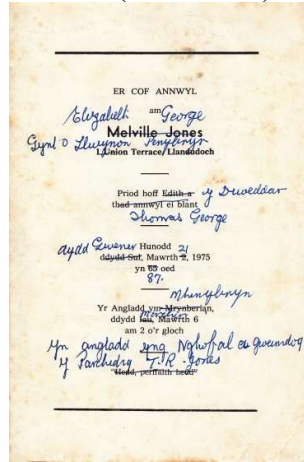 ER COF ANNWYL
Elizabeth am George
Melville Jones
Gynt o Llwynon Penybryn
1, Union Terrace, Llandudoch
Priod hoff Edith a y Diweddar
thad annwyl ei blant
Thomas George
nydd Gwener Hunodd 21
ddydd Sul, Mawrth 2, 1975
yn 65 oed
87.
Mhenybryn
Yr Angladd ym Mrynberian,
Mawrth
ddydd Iau, Mawrth 6
am 2 o'r gloch
Yn angladd yng Nghofal ei Gweinidog
Y Parchedig T. R. Jones
"Hedd, perffaith hedd"